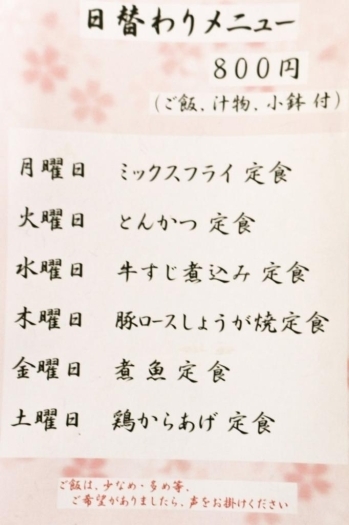 日替わりメニュー
800円
(ご飯、汁物、小鉢 付)
月曜日 ミックスフライ 定食
火曜日 とんかつ 定食
水曜日 牛すじ煮込み 定食
木曜日 豚ロースしょうが焼定食
金曜日 煮魚 定食
土曜日 鶏からあげ 定食
ご飯は、少なめ・多め等、
ご希望がありましたら、声をお掛けください